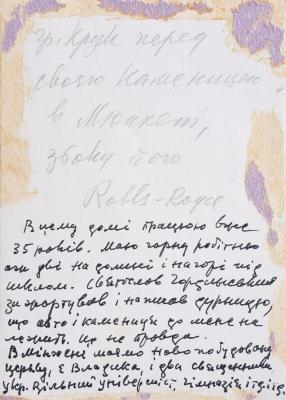 гр. Крук перед
своєю Каменицею
в Мюнхені,
збоку його
Rolls-Royce
В цему домі працюю вже
35 років. Маю гарну робітню
аж дві на долині і на горі під
шклом. Святослав Гординський
зажартував і написав дурницю,
що авто і камениця до мене на
лежить. Це не правда.
В Мінхені маємо ново побудовану
церкву, є Владика, і два священники
Укр. Вільний Університ, гімназія і т.д.